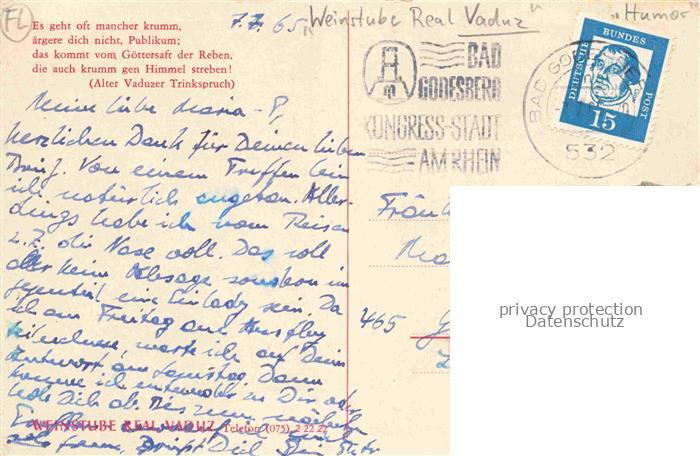 FL
7.7.65
"Weinstube Real Vaduz"
"Humor
Es geht oft mancher krumm,
ärgere dich nicht, Publikum;
das kommt vom Göttersaft der Reben,
die auch krumm gen Himmel streben!
(Alter Vaduzer Trinkspruch)
BAD
GODESBERG
KONGRESS-STADT
AM RHEIN
BAD GO
532
DEUTSCHE BUNDES POST
15
Meine liebe Maria-P,
herzlichen Dank für Deinen lieben
Brief. Von einem Treffen bin
ich natürlich angetan. Aller-
dings habe ich vom Reisen
z. Z. die Nase voll. Das soll
aber keine Absage sondern im
Gegenteil eine Einladg sein. Da
ich am Freitag einen Ausflug
warte ich auf Deine
Antwort am Samstag. Dann
komme ich entweder zu Dir oder
hole Dich ab. Bis zum
freuen, grüßt Dich Dein
Fräul
Ma
465
privacy protection
Datenschutz
WEINSTUBE REAL VADUZ Telefon (075) 2 22 22